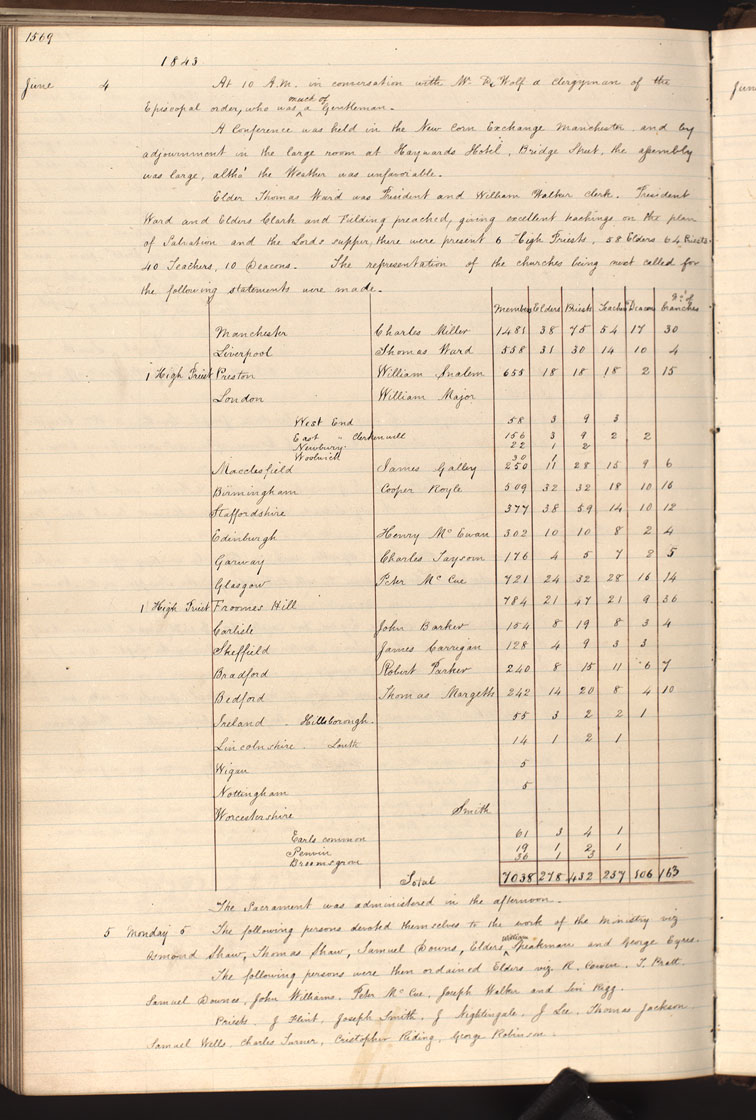 1569
1843
June 4 At 10 A.M. in conversation with Mr. De Wolf a clergyman of the
Episcopal order, who was much of a Gentleman.
A Conference was held in the New Corn Exchange Manchester and by
adjournment in the large room at Haywards Hotel, Bridge Street, the assembly
was large, altho' the Weather was unfavorable.
Elder Thomas Ward was President and William Walker clerk. President
Ward and Elders Clark and Fielding preached, giving excellent teachings on the plan
of Salvation and the Lords supper, there were present 6 High Priests, 58 Elders 64 Priests
40 Teachers, 10 Deacons. The representation of the churches being next called for
the following statements were made.
Members Elders Priests Teachers Deacons No. of branches
Manchester Charles Miller 1481 38 75 54 17 30
Liverpool Thomas Ward 558 31 30 14 10 4
1 High Priest Preston William Snalem 655 18 18 18 2 15
London William Major
West End 58 3 9 3
East " Clerkenwell 156 3 9 2 2
Newbury 22 1 2
Woolwich 30 1
Macclesfield James Galley 250 11 28 15 9 6
Birmingham Cooper Royle 509 32 32 18 10 16
Staffordshire 377 38 59 14 10 12
Edinburgh Henry Mc Ewan 302 10 10 8 2 4
Garway Charles Taysom 176 4 5 7 2 5
Glasgow Peter Mc Cue 721 24 32 28 16 14
1 High Priest Froomes Hill 784 21 47 21 9 36
Carlisle John Barker 154 8 19 8 3 4
Sheffield James Carrigan 128 4 9 3 3
Bradford Robert Parker 240 8 15 11 6 7
Bedford Thomas Margetts 242 14 20 8 4 10
Ireland . Hillsborough. 55 3 2 2 1
Lincolnshire . Louth 14 1 2 1
Wigan 5
Nottingham 5
Worcestershire Smith
Earls common 61 3 4 1
Penvin 19 1 2 1
Broomsgrove 36 1 3
Total 7038 278 432 237 106 163
The Sacrament was administered in the afternoon.
5 Monday 5 The following persons devoted themselves to the work of the ministry viz
Osmond Shaw, Thomas Shaw, Samuel Downs, Elders William Speakmare and George Eyres.
The following persons were then ordained Elders viz. R. Cowen. T. Pratt.
Samuel Downes, John Williams. Peter Mc Cue, Joseph Walker and Levi Rigg.
Priests. J Flint, Joseph Smith. J Nightengale. J Lee. Thomas Jackson.
Samuel Wells. Charles Turner, Cristopher Riding, George Robinson.
June